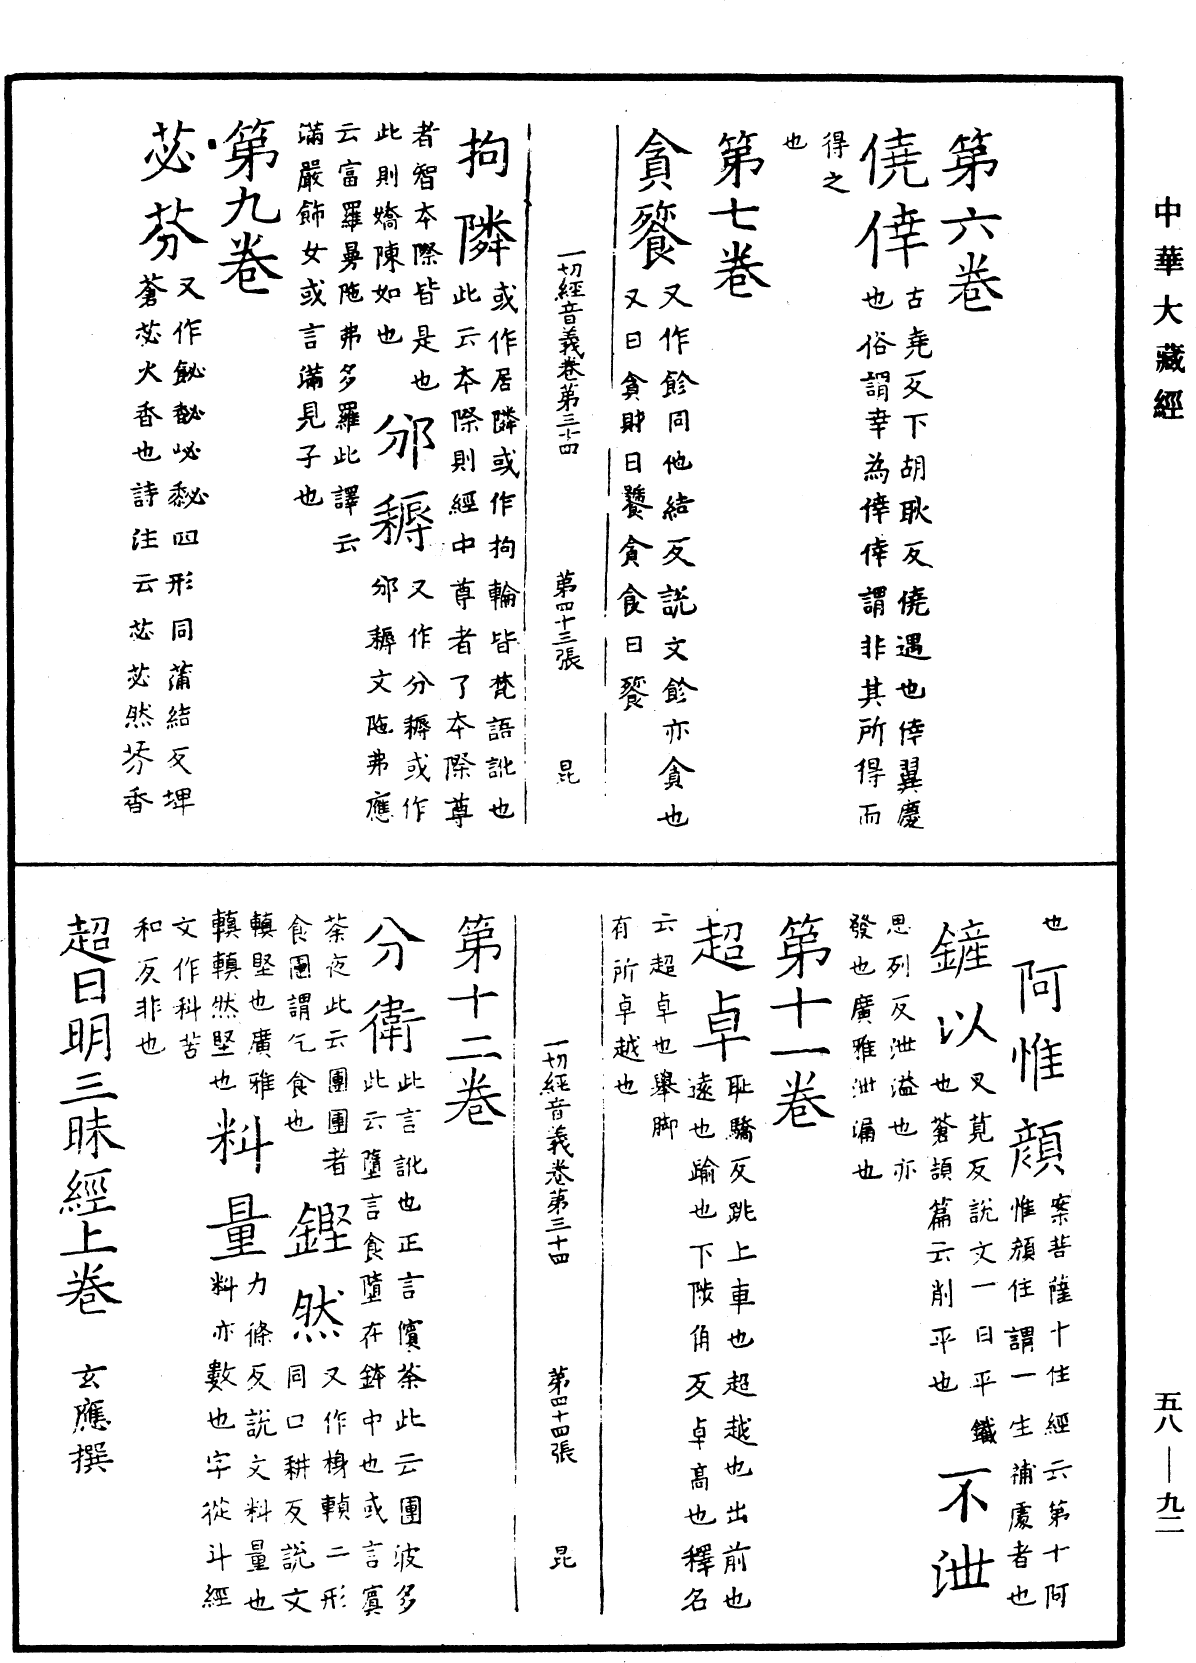 中華大藏經
第六卷
僥倖
古堯反下胡耿反僥遇也倖翼慶
也俗謂幸為倖倖謂非其所得而
得之
也
第七卷
貪餮
又作飻同他結反說文飻亦貪也
又曰貪財曰饕貪食曰餮
一切經音義卷第三十四　第四十三張　昆
拘隣
或作居隣或作拘輪皆梵語訛也
此云本際則經中尊者了本際尊
者智本際皆是也
此則嬌陳如也
邠耨
又作分耨或作
邠耨文陁弗應
云富羅曼陁弗多羅此譯云
滿嚴飾女或言滿見子也
第九卷
苾芬
又作飶馝苾䬛四形同蒲結反埤
蒼苾大香也詩注云苾苾然芬香
也
阿惟顔
案菩薩十住經云第十阿
惟顔住謂一生補處者也
鏟以
叉莧反說文一曰平鐵
也蒼頡篇云削平也
不泄
思列反泄溢也亦
發也廣雅泄漏也
第十一卷
超卓
恥驕反跳上車也超越也出前也
遠也踰也下陟角反卓高也釋名
云超卓也舉脚
有所卓越也
一切經音義卷第三十四　第四十四張　昆
第十二卷
分衛
此言訛也正言儐荼此云團波多
此云墮言食墮在鉢中也或言賓
荼夜此云團團者
食團謂乞食也
鏗然
又作摼䡰二形
同口耕反說文
䡰堅也廣雅
䡰䡰然堅也
料量
力條反說文料量也
料亦數也字從斗經
文作科苦
和反非也
超日明三昧經上卷　玄應撰
五八—九二